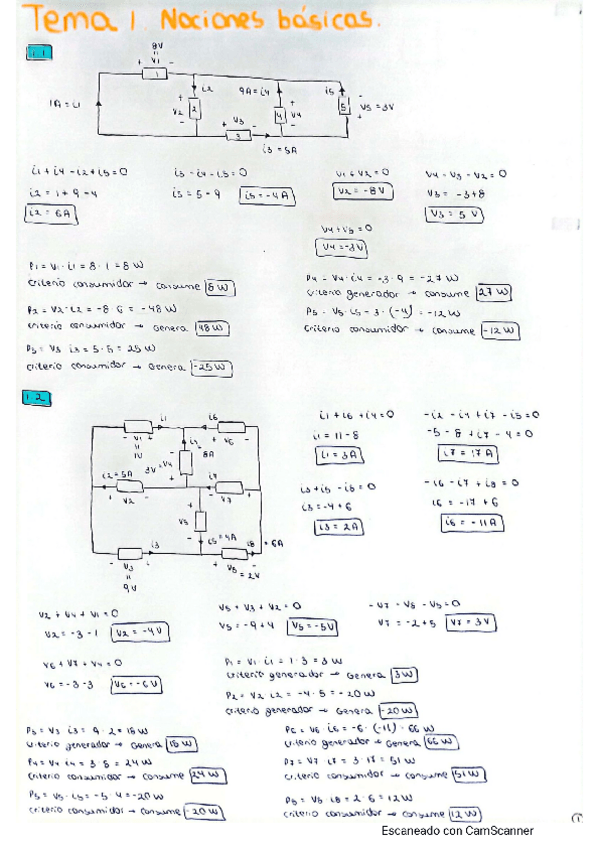 Tema 1. Nociones básicas.
1.1
8V
=
+ V1 -
1
1A = i1
i2
+
V2
2
-
9A = i4
+
4
V4
-
i5
5
+
V5 = 3V
-
+ V3 -
3
i3 = 5A
i1 + i4 - i2 + i5 = 0
i2 = 1 + 9 - 4
i2 = 6A
i3 - i4 - i5 = 0
i5 = 5 - 9
i5 = -4A
V1 + V2 = 0
V2 = -8V
V4 - V3 - V2 = 0
V3 = -3+8
V3 = 5V
V4 + V5 = 0
V4 = -3V
P1 = V1 · i1 = 8 · 1 = 8 W
criterio consumidor → consume 8W
P2 = V2 · i2 = -8 · 6 = -48 W
criterio consumidor → Genera 48W
P3 = V3 · i3 = 5 · 5 = 25 W
criterio consumidor → Genera -25W
P4 = V4 · i4 = -3 · 9 = -27 W
criterio generador → consume 27 W
P5 = V5 · i5 = 3 · (-4) = -12 W
criterio consumidor → consume -12 W
1.2
i1
i6
- V1 +
=
1V
- V6 +
i4
8A
3V = V4
i2 = 5A
V2
i7
V7
V5
i5 = 4A
i3
V3
=
9V
i8 = 6A
V8 = 2V
i1 + i6 + i4 = 0
i1 = 11 - 8
i1 = 3A
-i2 - i4 + i7 - i5 = 0
-5 - 8 + i7 - 4 = 0
i7 = 17A
i3 + i5 - i8 = 0
i3 = -4 + 6
i3 = 2A
-i6 - i7 + i8 = 0
i6 = -17 + 6
i6 = -11A
V2 + V4 + V1 = 0
V2 = -3 - 1
V2 = -4V
V5 + V3 + V2 = 0
V5 = -9 + 4
V5 = -5V
-V7 - V8 - V5 = 0
V7 = -2 + 5
V7 = 3V
V6 + V7 + V4 = 0
V6 = -3 - 3
V6 = -6V
P1 = V1 · i1 = 1 · 3 = 3 W
criterio generador → Genera 3W
P2 = V2 · i2 = -4 · 5 = -20 W
criterio generador → Genera -20W
P3 = V3 · i3 = 9 · 2 = 18 W
criterio generador → Genera 18 W
P4 = V4 · i4 = 3 · 8 = 24 W
criterio consumidor → consume 24 W
P5 = V5 · i5 = -5 · 4 = -20 W
criterio consumidor → consume -20W
P6 = V6 · i6 = -6 · (-11) = 66 W
criterio generador → Genera 66 W
P7 = V7 · i7 = 3 · 17 = 51 W
criterio consumidor → consume 51 W
P8 = V8 · i8 = 2 · 6 = 12 W
criterio consumidor → consume 12 W
1
Escaneado con CamScanner